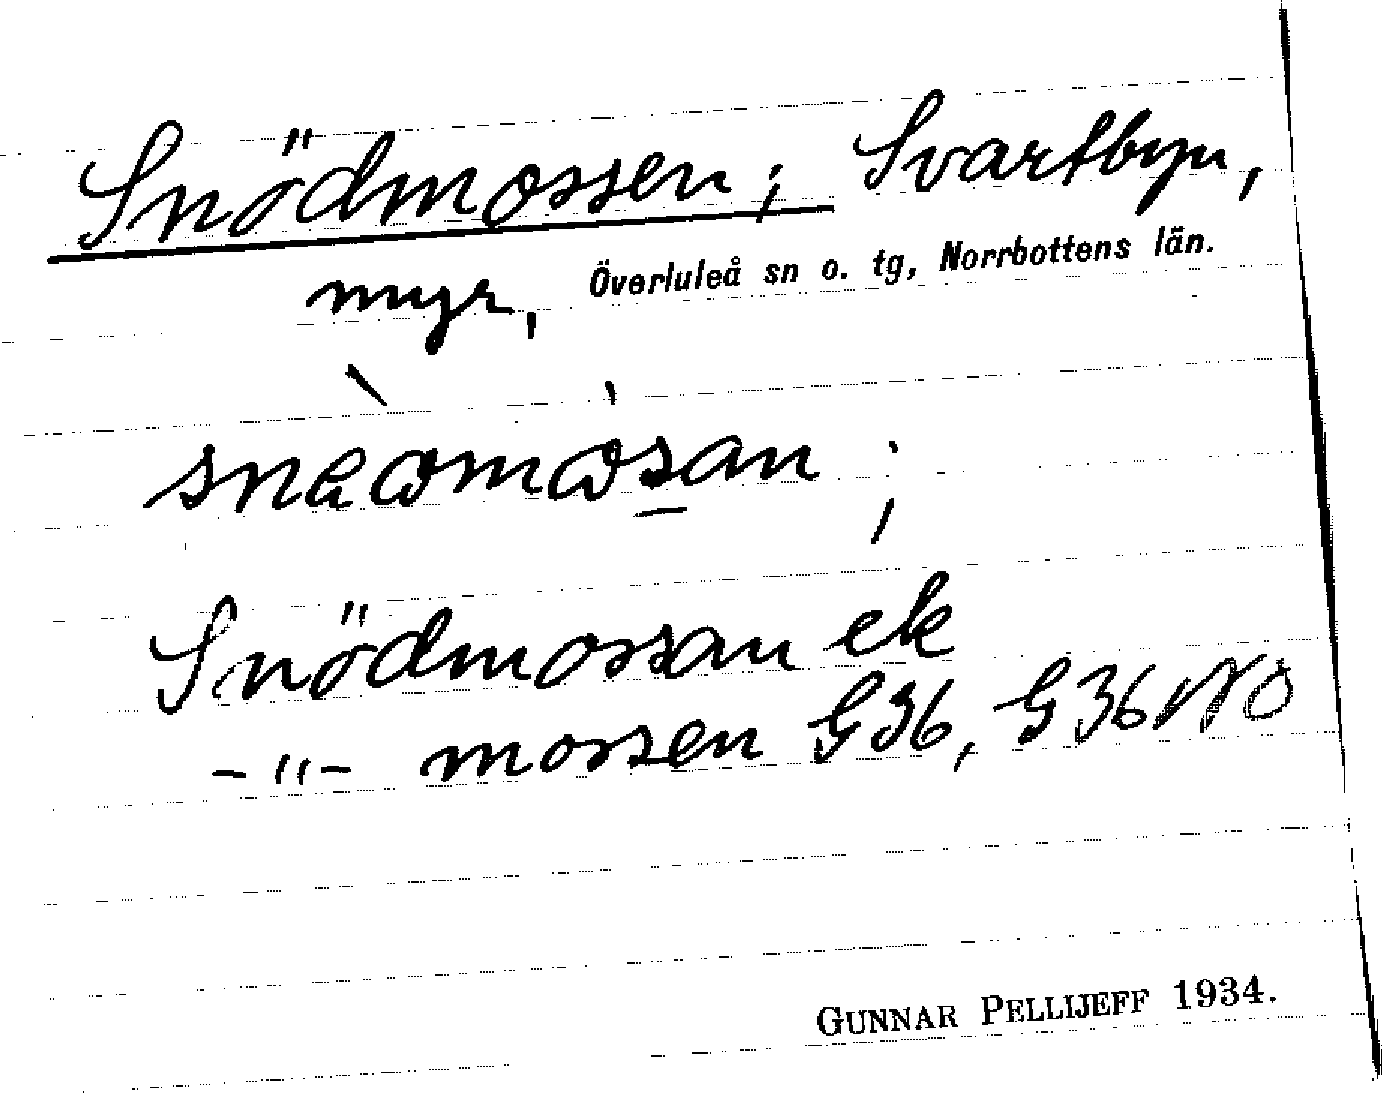 Snödmossen; Svartbyn,
myr, Överluleå sn o. tg, Norrbottens län.
Snödmossan ek
-"- mossen G36, G36 NO
GUNNAR PELLIJEFF 1934.